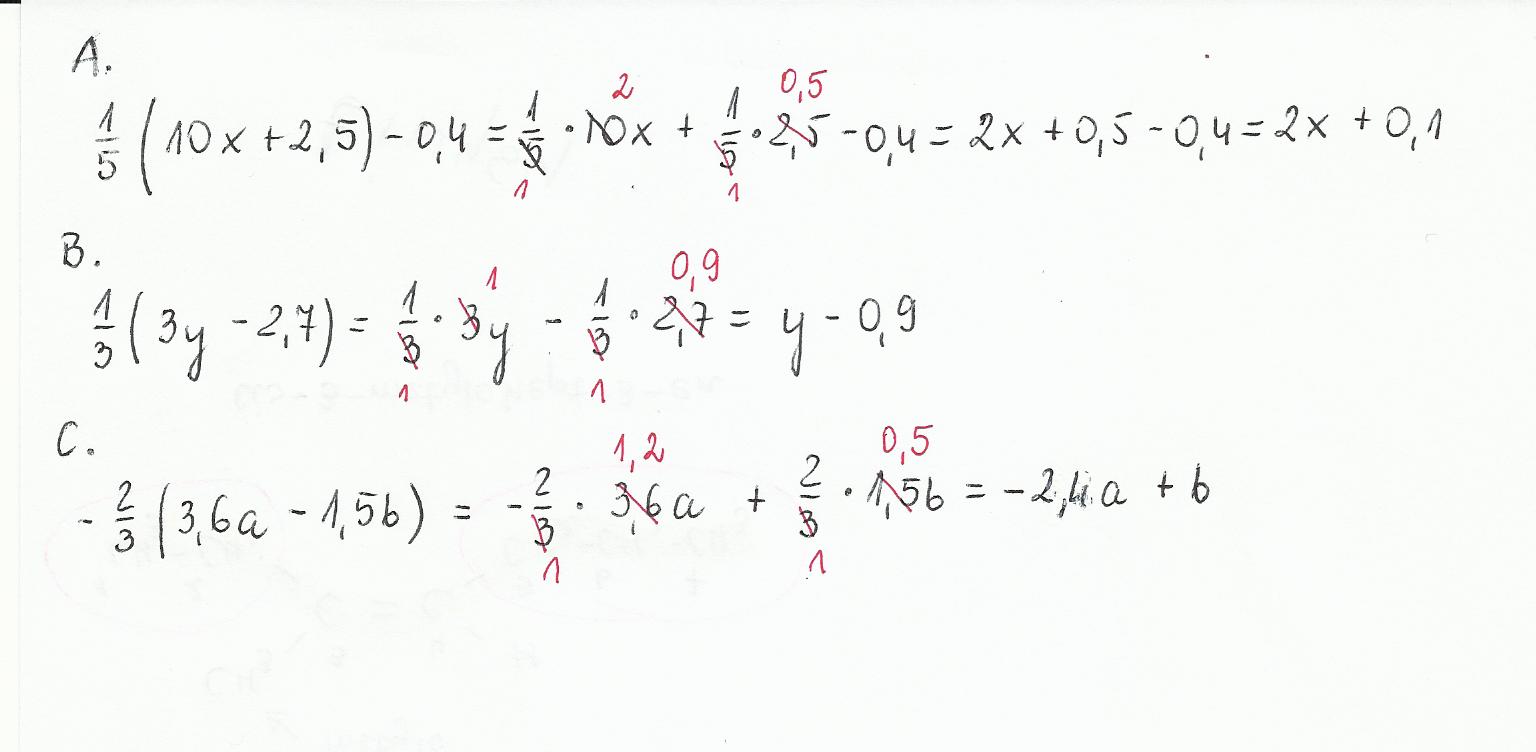 A.
2 0,5
1/5 (10x + 2,5) - 0,4 = 1/5 · 10x + 1/5 · 2,5 - 0,4 = 2x + 0,5 - 0,4 = 2x + 0,1
1 1
B.
1 0,9
1/3 (3y - 2,7) = 1/3 · 3y - 1/3 · 2,7 = y - 0,9
1 1
C.
1,2 0,5
- 2/3 (3,6a - 1,5b) = - 2/3 · 3,6a + 2/3 · 1,5b = -2,4a + b
1 1